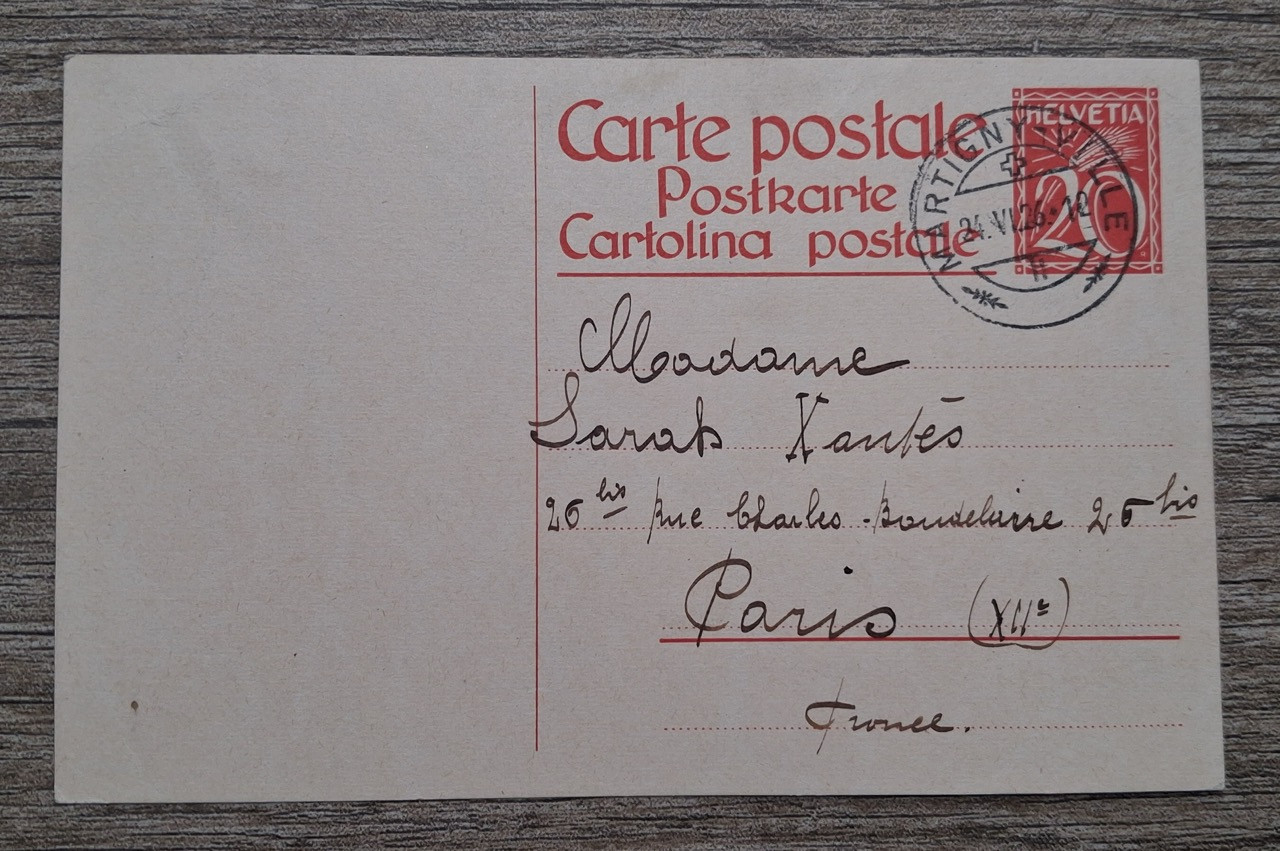 Carte postale
Postkarte
Cartolina postale
HELVETIA
20
MARTIGNY-VILLE
24.VI.26-12
Madame
Sarah Xantès
26 bis Rue Charles-Baudelaire 26 bis
Paris (XIIe)
France.